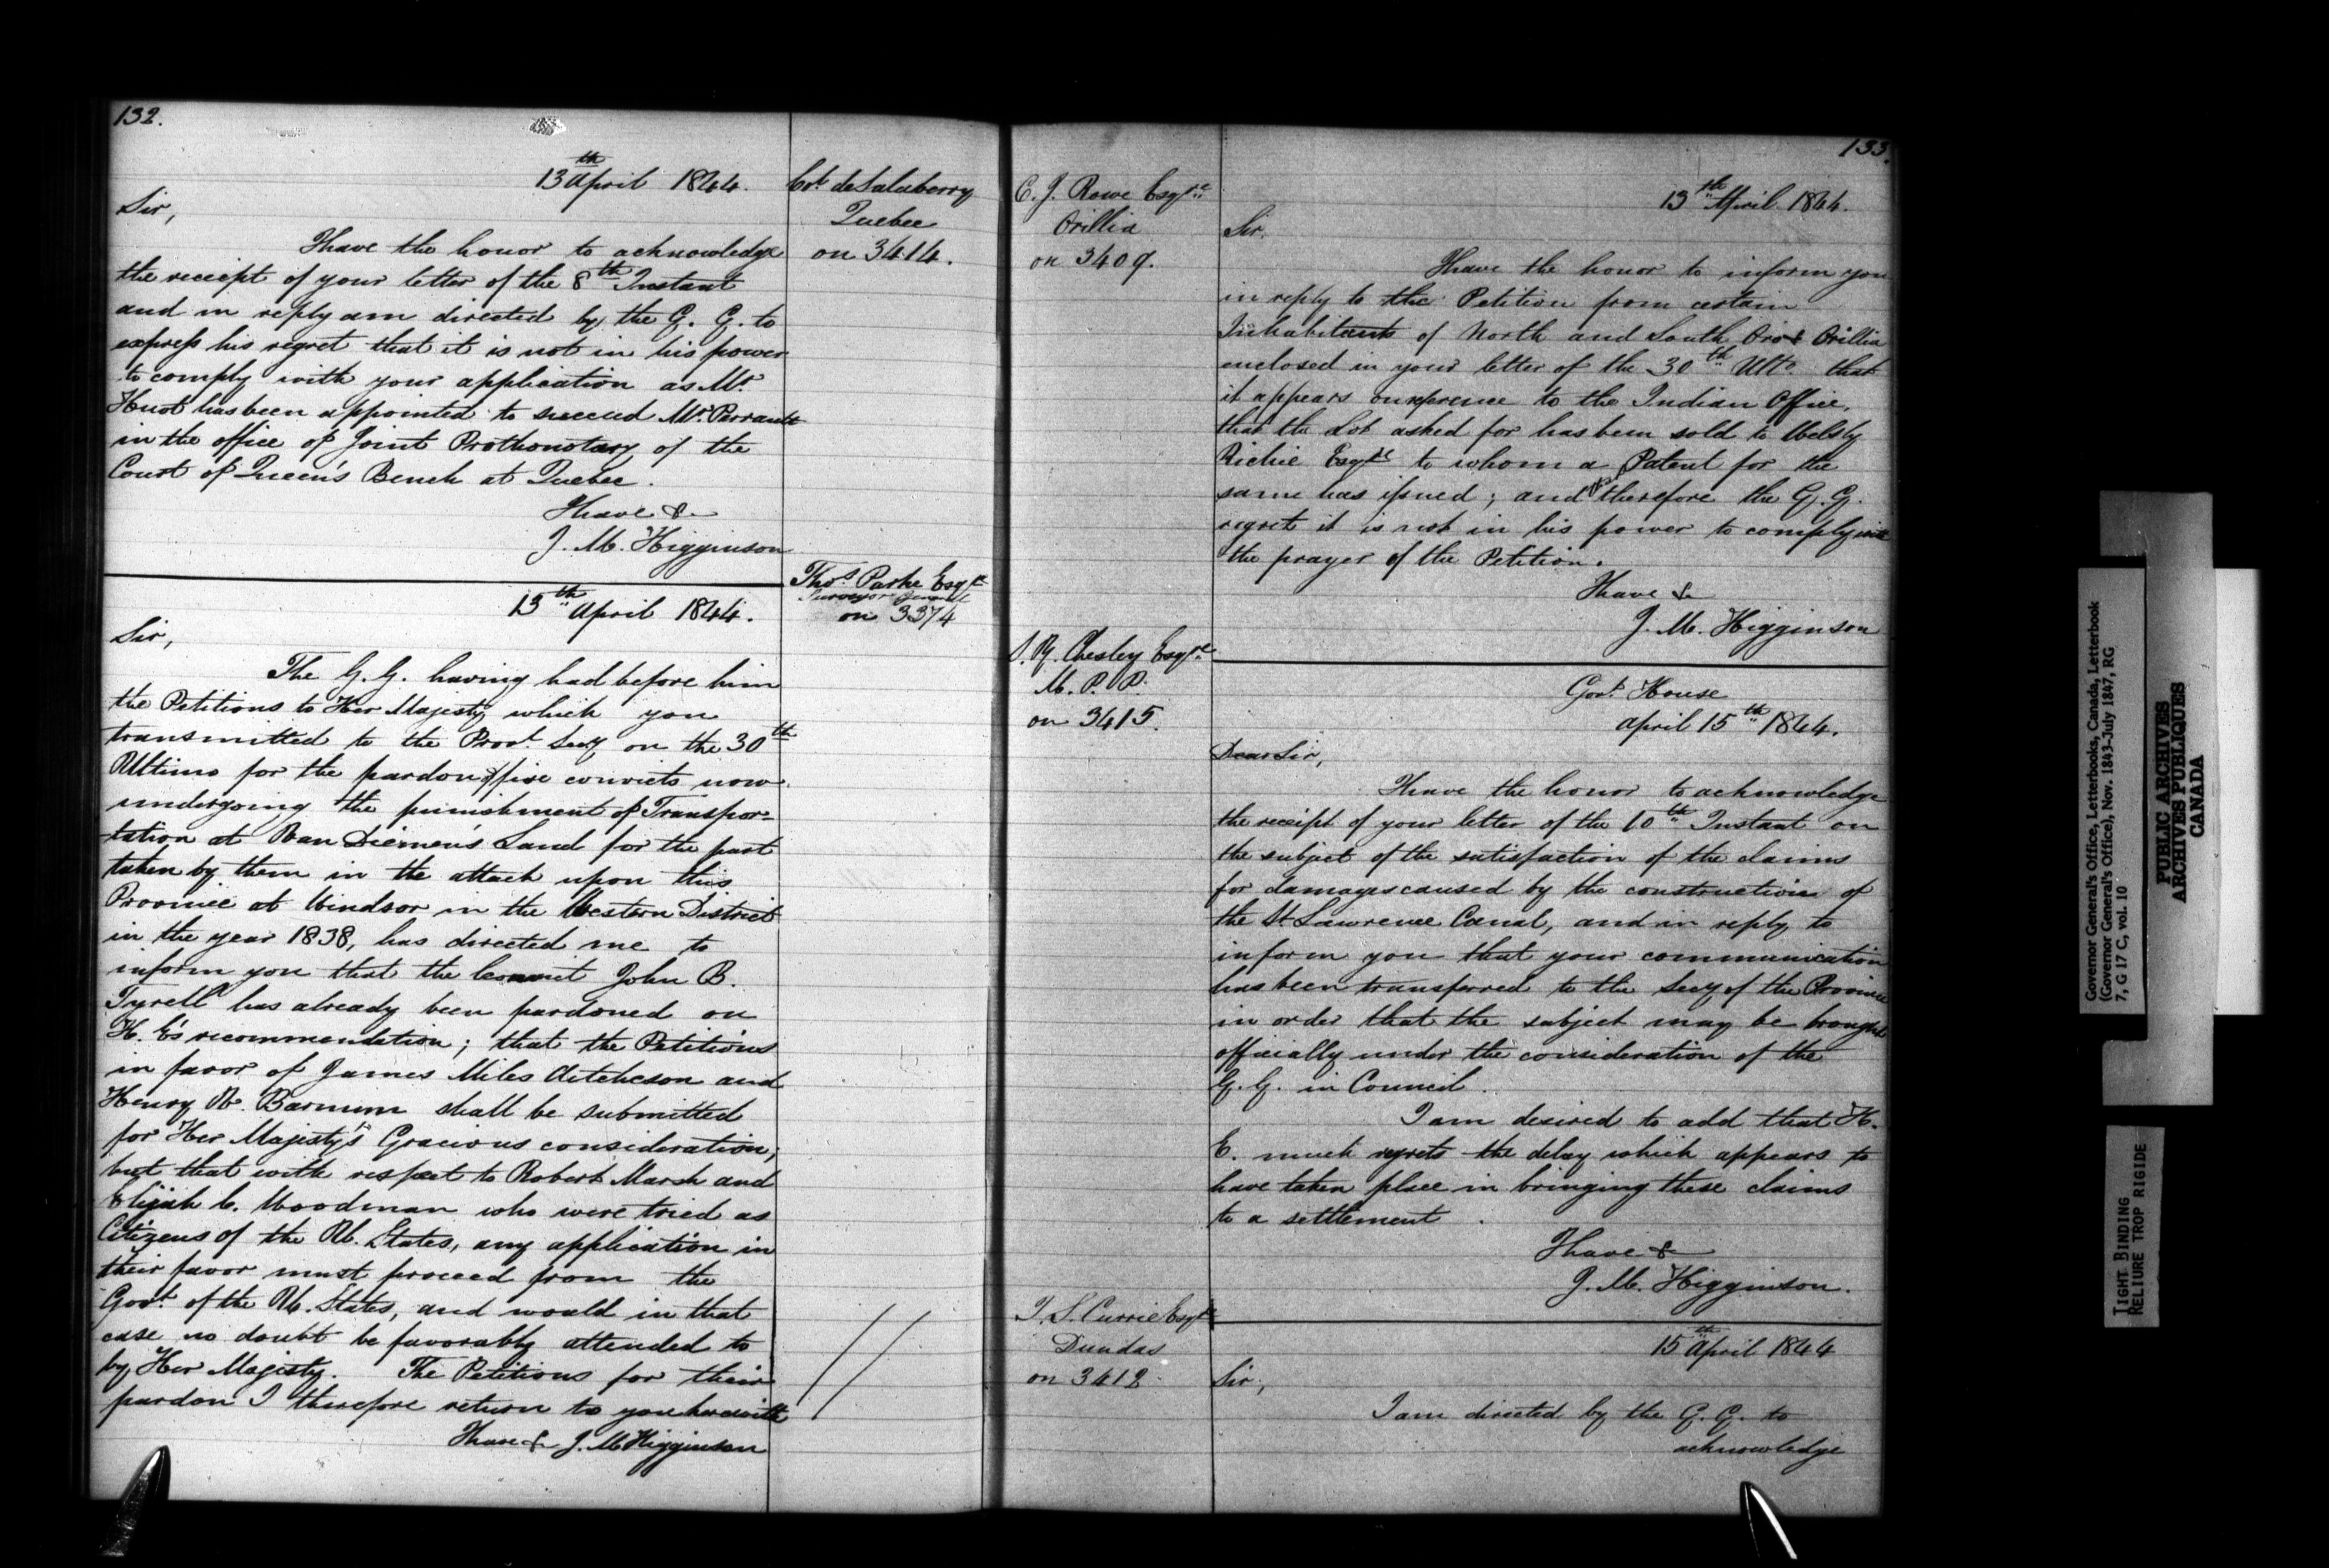 132.
13th April 1844.
Col. deSalaberry
Quebec
on 3414.
Sir,
I have the honor to acknowledge
the receipt of your letter of the 8th Instant
and in reply am directed by the G. G. to
express his regret that it is not in his power
to comply with your application as Mr.
Huot has been appointed to succeed Mr. Perrault
in the office of Joint Prothonotary of the
Court of Queen's Bench at Quebec.
I have &
J. M. Higginson
Thos. Parke Esqre
Surveyor General
on 3374
13th April 1844.
Sir,
The G. G. having had before him
the Petitions to Her Majesty which you
transmitted to the Provl. Secy on the 30th
Ultimo for the pardon of five convicts now
undergoing the punishment of Transpor=
tation at Van Diemen's Land for the part
taken by them in the attack upon this
Province at Windsor in the Western District
in the year 1838, has directed me to
inform you that the Convict John B.
Tyrell has already been pardoned on
H. E's recommendation; that the Petitions
in favor of James Miles Aitcheson and
Henry W. Barnum shall be submitted
for Her Majesty's Gracious consideration,
but that with respect to Robert Marsh and
Elijah C. Woodman who were tried as
Citizens of the U. States, any application in
their favor must proceed from the
Govt. of the U. States, and would in that
case no doubt be favorably attended to
by Her Majesty. The Petitions for their
pardon I therefore return to you herewith
I have & J. M Higginson
133.
C. J. Rowe Esqre
Orillia
on 3409.
13th April 1844.
Sir,
I have the honor to inform you
in reply to the Petition from certain
Inhabitants of North and South Oro & Orillia
enclosed in your letter of the 30th Ulto. that
it appears on reference to the Indian Office,
that the Lot asked for has been sold to Welsly
Richie Esqre to whom a Patent for the
same has issued; and therefore the G. G.
regrets it is not in his power to comply with
the prayer of the Petition.
I have &
J. M. Higginson
S. Y. Chesley Esqre
M. P. P.
on 3415.
Govt. House
April 15th 1844.
Dear Sir,
I have the honor to acknowledge
the receipt of your letter of the 10th Instant on
the subject of the satisfaction of the claims
for damages caused by the construction of
the St. Lawrence Canal, and in reply to
inform you that your communication
has been transferred to the Secy of the Province
in order that the subject may be brought
officially under the consideration of the
G. G. in Council.
I am desired to add that H.
E. much regrets the delay which appears to
have taken place in bringing these claims
to a settlement.
I have &
J. M. Higginson.
T. S. Currie Esqre
Dundas
on 3412
15th April 1844
Sir,
I am directed by the G. G. to
acknowledge
Governor General's Office, Letterbooks, Canada, Letterbook
(Governor General's Office), Nov. 1843-July 1847, RG
7, G 17 C, vol. 10
PUBLIC ARCHIVES
ARCHIVES PUBLIQUES
CANADA
TIGHT BINDING
RELIURE TROP RIGIDE